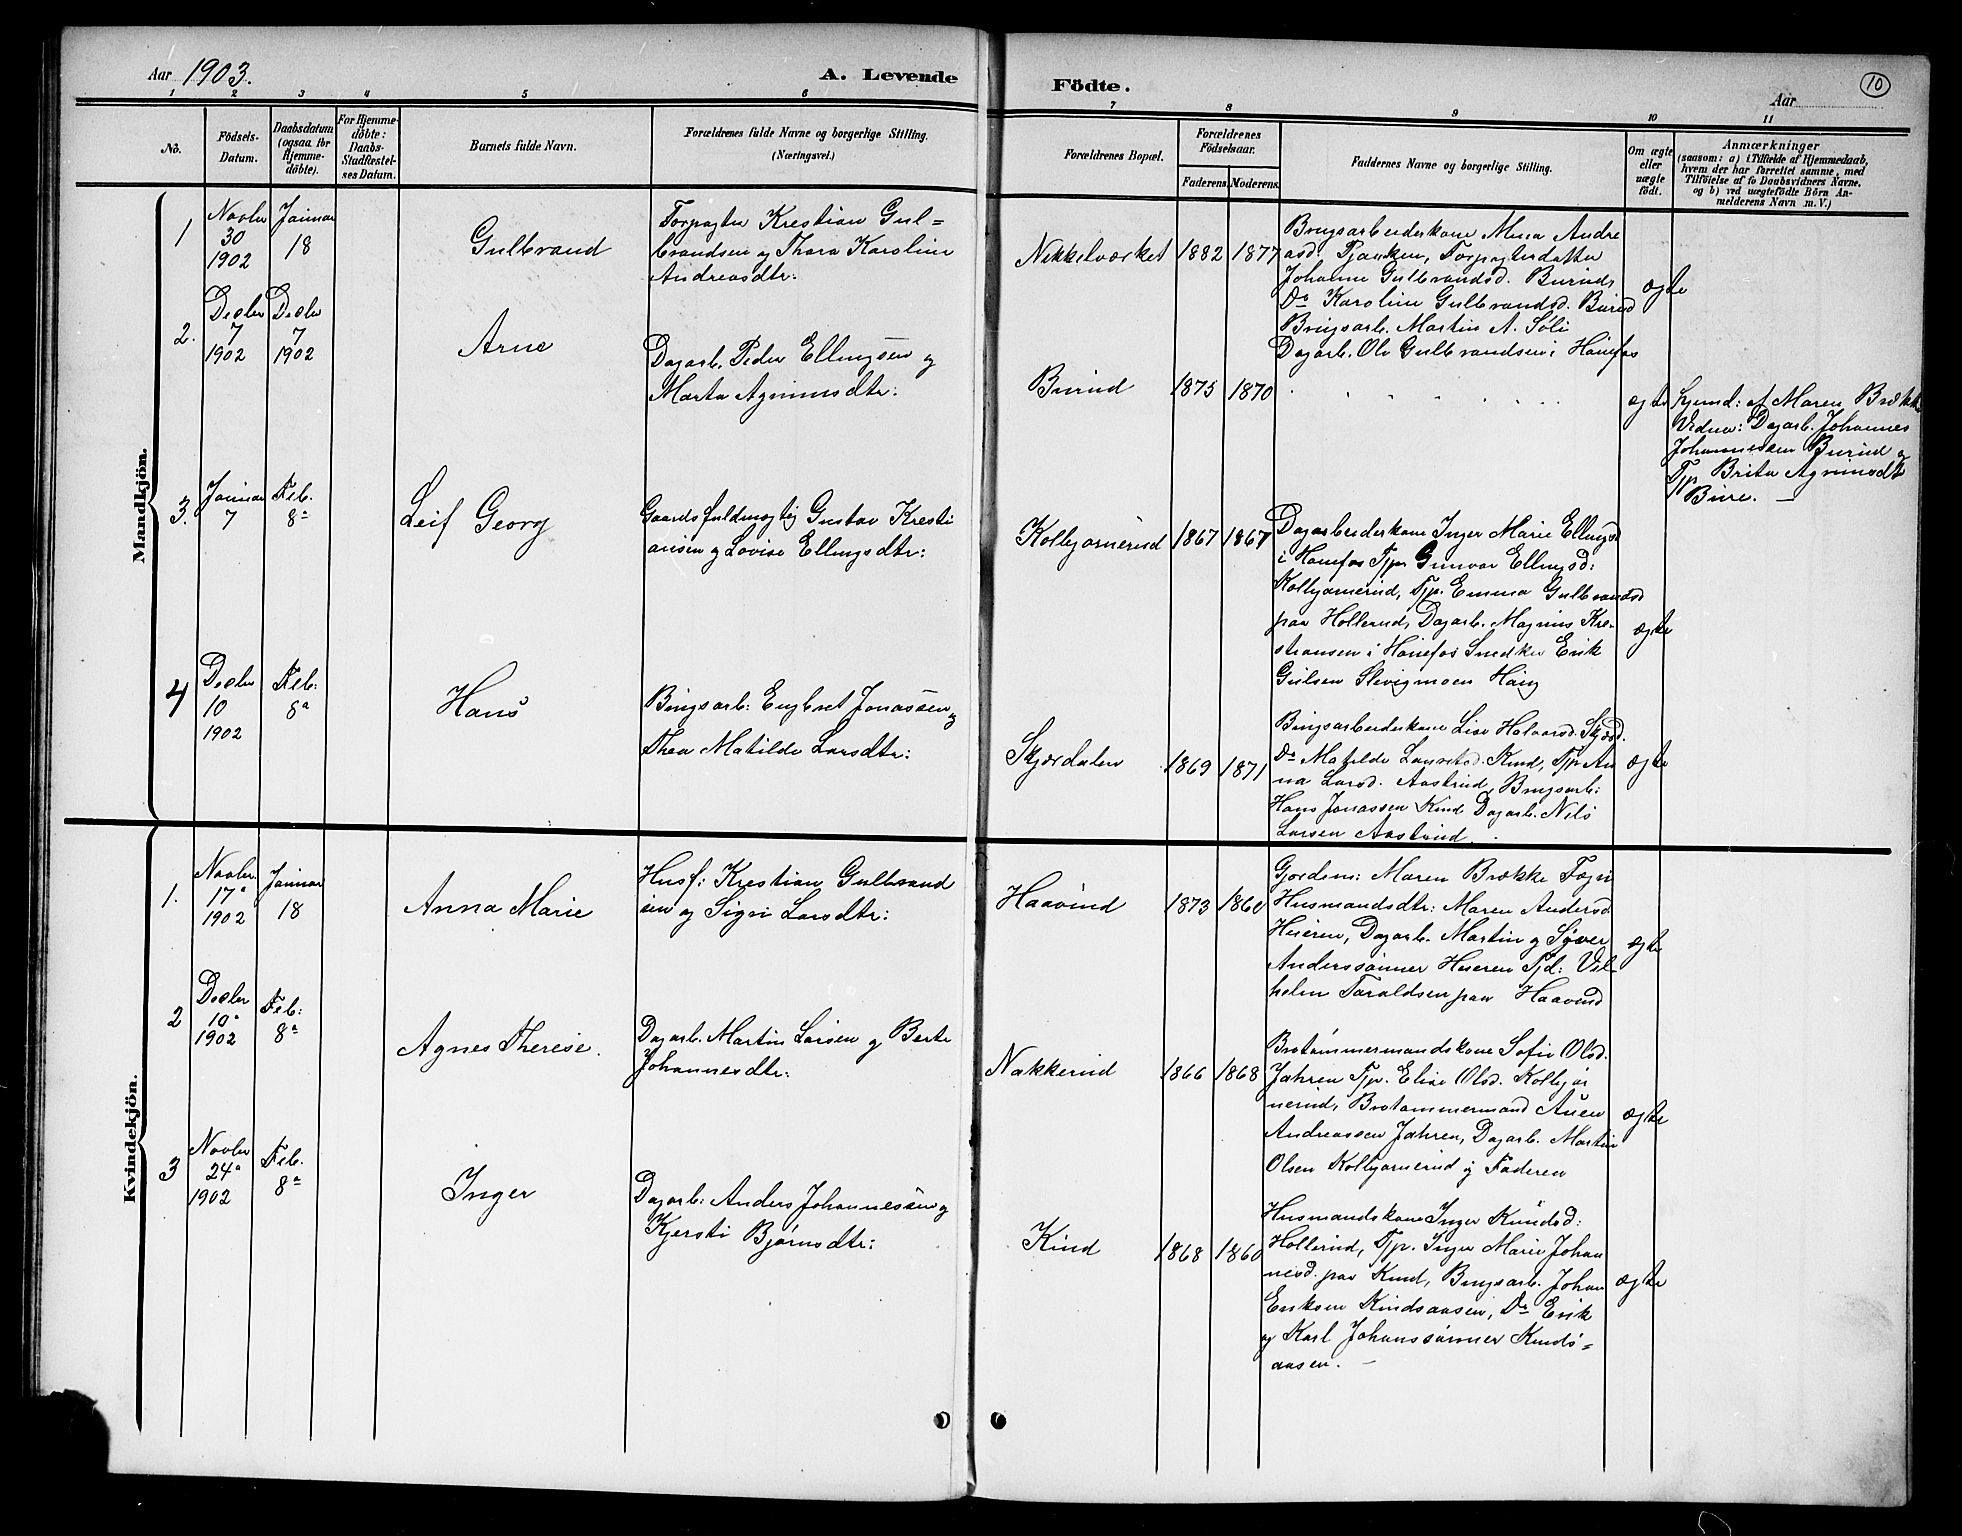 Aar 1903.
A. Levende
Födte.
Aar
10
1 2 3 4 5 6
7 8 9 10 11
No.
Födsels-
Datum.
Daabsdatum
(ogsaa for
Hjemme-
döbte).
For Hjemme-
döbte:
Daabs-
Stadfæstel-
ses Datum.
Barnets fulde Navn.
Forældrenes fulde Navne og borgerlige Stilling.
(Næringsvei.)
Forældrenes Bopæl.
Forældrenes
Födselsaar.
Faderens. Moderens.
Faddernes Navne og borgerlige Stilling.
Om ægte
eller
uægte
födt.
Anmærkninger
(saasom: a) i Tilfælde af Hjemmedaab,
hvem der har forrettet samme, med
Tilföielse af to Daabsvidners Navne.
og b) ved uægtefödte Börn An-
melderens Navn m. V.)
Mandkjön.
1
Novbr
30
1902
Januar
18
Gulbrand
Forpagter Krestian Gul-
brandsen og Thora Karoline
Andreasdtr:
Nikkelværket
1882
1877
Brugsarbeiderkone Mina Andre
asd. Tjanken, Forpagterdatter
Johanne Gulbrandsd. Burud,
Do Karoline Gulbrandsd. Burud
Brugsarb. Martin A. Søli
Dagarb. Ole Gulbrandsen i Hönefos
ægte
2.
Decbr
7
1902
Decbr
7
1902
Arne
Dagarb. Peder Ellingsen og
Marta Agrimsdtr:
Burud
1875
1870
ægte
hjemd: af Maren Brække
Vidner: Dagarb. Johannes
Johannessen Burud og
Tjp. Brita Agrimsdtr
Bure. —
3.
Januar
7
Feb.
8a
Leif Georg
Gaardsfuldmægtig Gustav Kresti
ansen og Lovise Ellingsdtr:
Kolbjørnerud
1867
1867
Dagarbeiderkone Inger Marie Ellingsd
i Hönefos Tjp. Gunvor Ellingsd:
Kolbjørnerud, Tjp. Emma Gulbrandsd
paa Hollerud, Dagarb. Magnus Kre-
stiansen i Hönefos Snedker Erik
Gulsen Slevigmoen Haug
ægte
4
Decbr
10
1902
Feb:
8a
Hans
Brugsarb: Engbret Jonassen og
Thea Matilde Larsdtr:
Skjærdalen
1869
1871
Brugsarbeiderkone Lise Halvorsd. Skjærd.
Do Matilde Lauretsd. Kind, Tjp An
na Larsd. Aasterud, Brugsarb:
Hans Jonassen Kind Dagarb. Nils
Larsen Aasterud.
ægte
Kvindekjön.
1.
Novbr
17a
1902
Januar
18
Anna Marie
Husf: Krestian Gulbrand
sen og Sigri Larsdtr:
Haavind
1873
Gjordem: Maren Brække Fægn
Husmandsdtr: Maren Andersd
Hieren, Dagarb. Martin og Syver
Anderssönner Hieren Tjd: Vil-
helm Taraldsen paa Haavind
ægte
2
Decbr
10a
1902
Feb:
8a
Agnes Therese.
Dagarb. Martin Larsen og Berte
Johannesdtr:
Nakkerud
1866
1868
Brotömmermandskone Sofie Olsd.
Jahren Tjp. Elise Olsd. Kolbjør
nerud, Brotømmermand Auen
Andreassen Jahren, Dagarb. Martin
Olsen Kolbjørnerud og Faderen
ægte
3
Novbr
24a
1902
Feb.
8a
Inger
Dagarb: Anders Johannessen og
Kjersti Bjørnsdtr:
Kind
1868
1860
Husmandskone Inger Knudsd:
Hollerud, Tjp. Inger Marie Johan
nesd. paa Kind, Brugsarb. Johan
Eriksen Kindsaasen, Do Erik
og Karl Johanssönner Kinds-
aasen. —
ægte